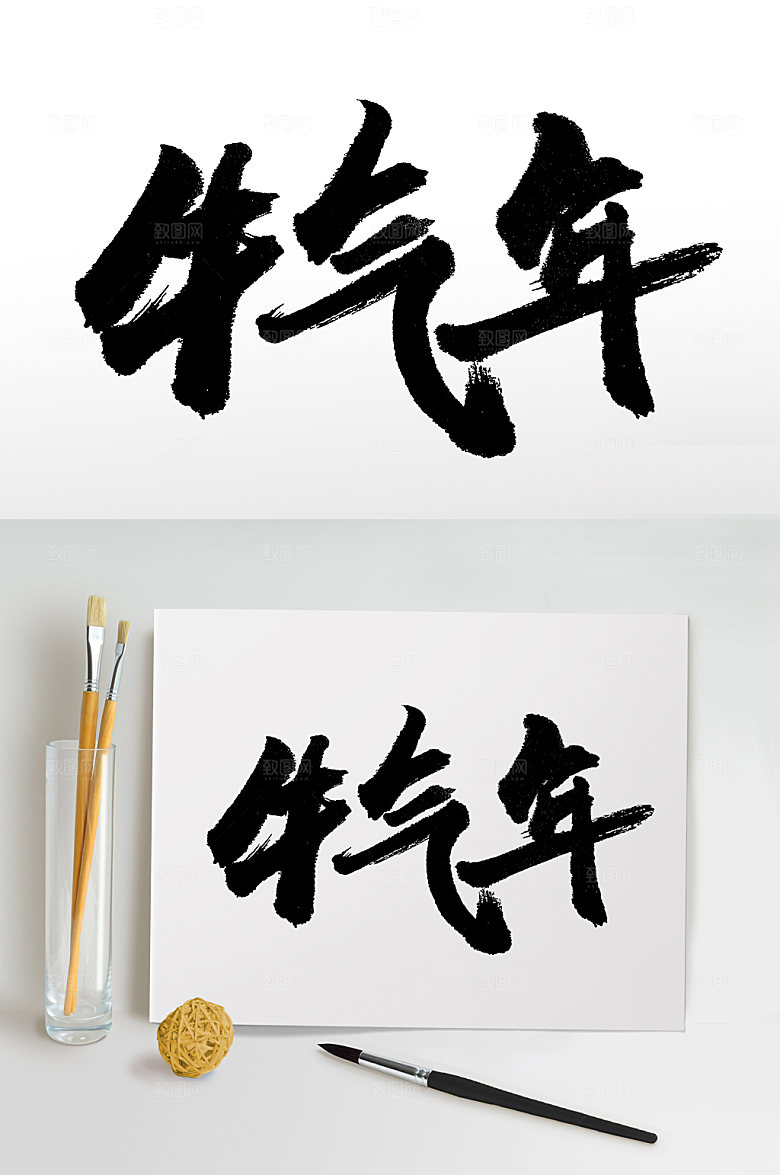 牛气年
牛气年